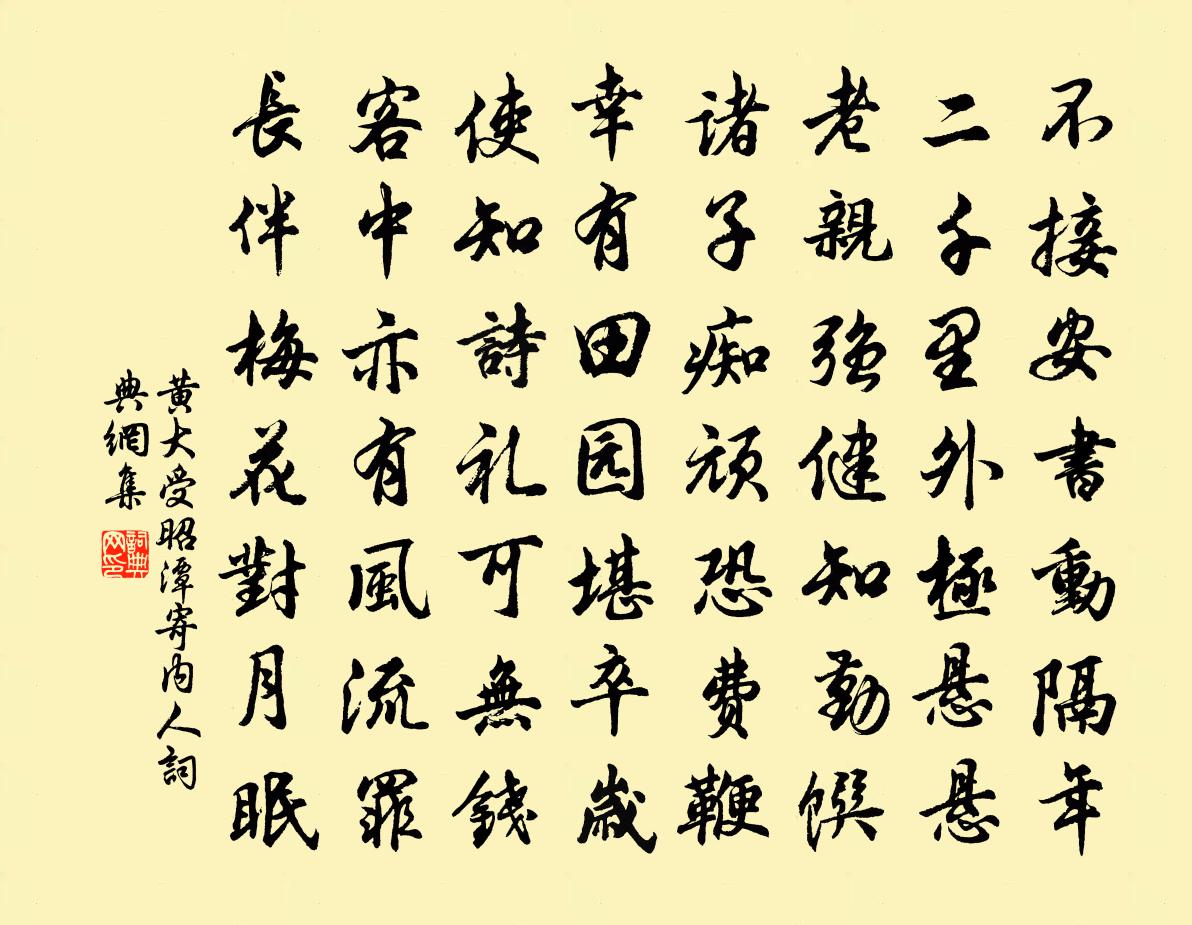 不接安書動隔年
二千里外極悬悬
老親強健知勤饌
諸子痴顽恐費鞭
幸有田园堪卒歲
使知詩礼可無錢
客中亦有風流罪
長伴梅花對月眠
黃大受昭潭寄内人詞
典網集
詞典
网印